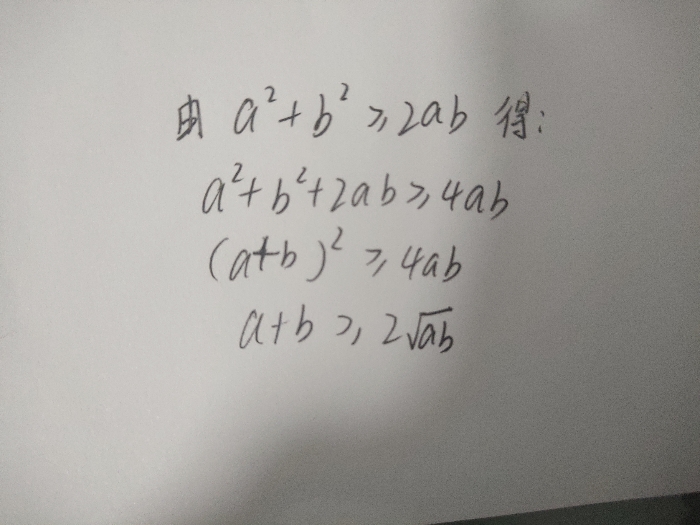 由 a²+b²⩾2ab 得:
a²+b²+2ab⩾4ab
(a+b)²⩾4ab
a+b⩾2√ab